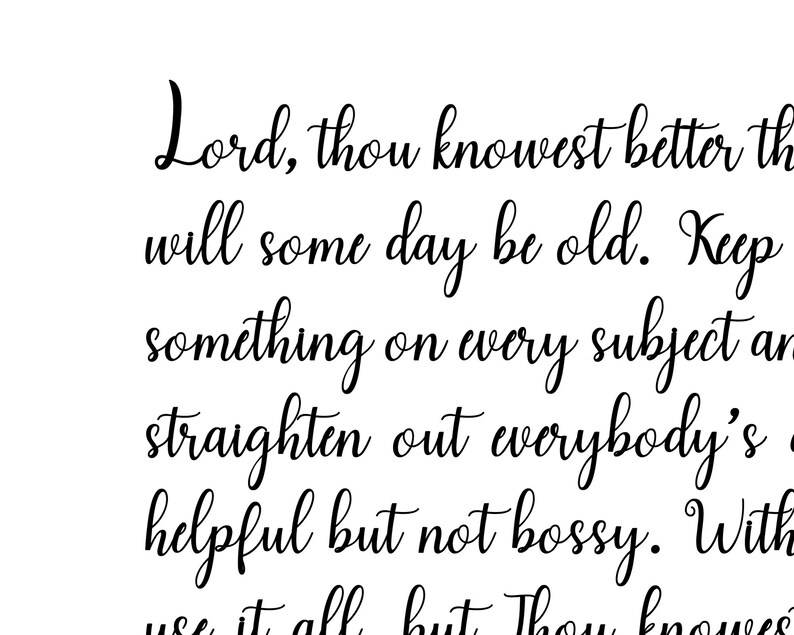 Lord, thou knowest better th
will some day be old. Keep
something on every subject an
straighten out everybody's
helpful but not bossy. With
use it all, but Thou knowes